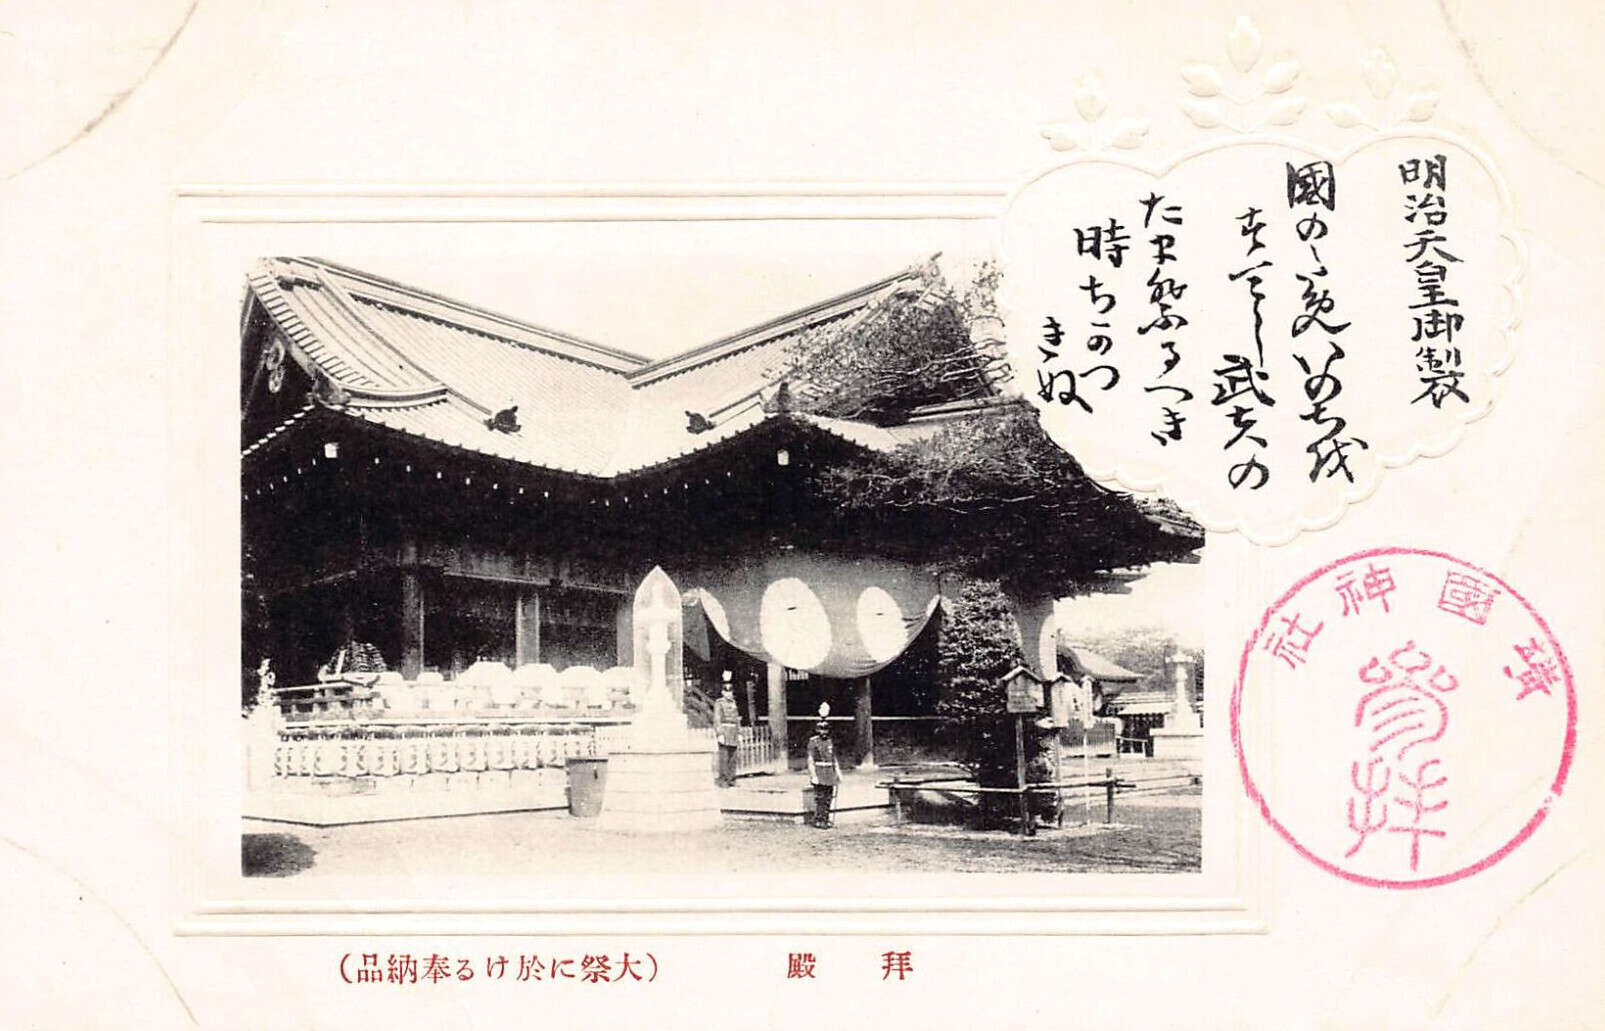 明治天皇御製
國のためいのちを
すてし武夫の
たま祭るへき
時ちかつ
きぬ
靖國神社
參拜
拜殿
(大祭に於ける奉納品)